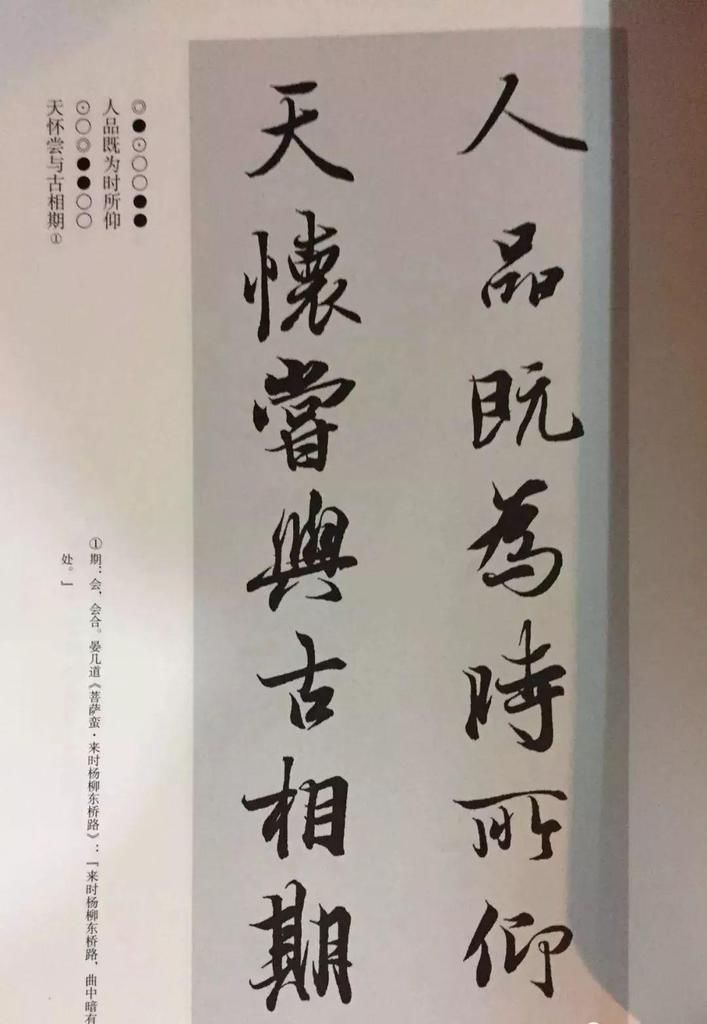 人品既為時所仰
天懷嘗與古相期
◎●⊙○○●●
人品既为时所仰
⊙○◎●●○○
天怀尝与古相期①
①期：会，会合。晏几道《菩萨蛮·来时杨柳东桥路》：「来时杨柳东桥路，曲中暗有
处。」